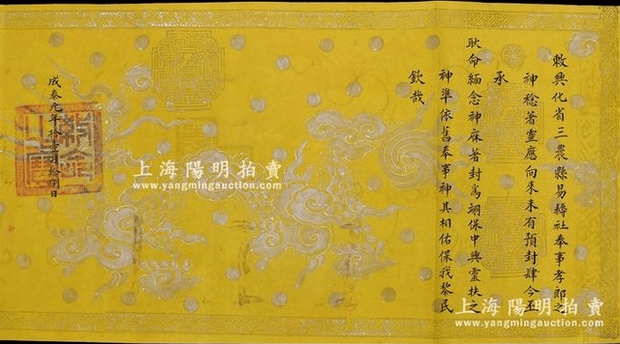 敕興化省三農縣易耨社奉事孝郎之
神稔著靈應向來未有預封肆今丕
承
耿命緬念神庥著封為翊保中興靈扶之
神準依舊奉事神其相佑保我黎民
欽哉
成泰元年拾壹月拾捌日
敕命之寶
上海陽明拍賣
www.yangmingauction.com
上海陽明拍賣
www.yangmingauction.com